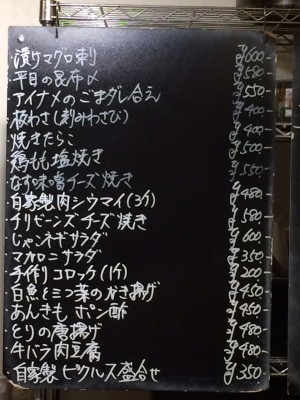 漬けマグロ刺 ¥600-
平目の昆布〆 ¥580-
アイナメのごまダレ合え ¥550
板わさ(刻みわさび) ¥400
焼きたらこ ¥400
鶏もも塩焼き ¥500-
なす味噌チーズ焼き ¥550-
自家製肉シウマイ(3ケ) ¥480
チリビーンズチーズ焼き ¥580
じゃこネギサラダ ¥600
マカロニサラダ ¥350
手作りコロッケ(1ケ) ¥200
白魚と三つ葉のかき揚げ ¥450
あんきも ポン酢 ¥450
とりの唐揚げ ¥480
牛バラ肉豆腐 ¥480
自家製ピクルス盛合せ ¥350